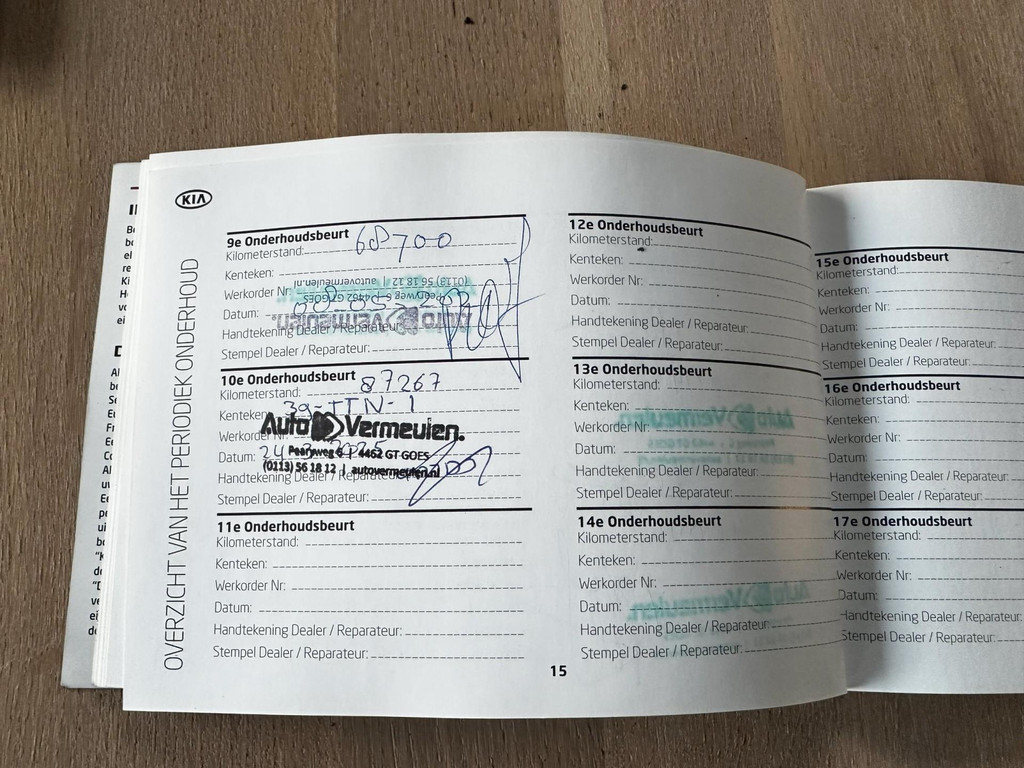 KIA
OVERZICHT VAN HET PERIODIEK ONDERHOUD
9e Onderhoudsbeurt
Kilometerstand: 68700
Kenteken:
Werkorder Nr:
Datum:
Handtekening Dealer / Reparateur:
Stempel Dealer / Reparateur:
Auto Vermeulen.
Pearyweg 6 4462 GT GOES
(0113) 56 18 12 autovermeulen.nl
10e Onderhoudsbeurt
Kilometerstand: 87267
Kenteken: 39-TTN-1
Werkorder Nr:
Datum: 24
Handtekening Dealer / Reparateur:
Stempel Dealer / Reparateur:
Auto Vermeulen.
Pearyweg 6 4462 GT GOES
(0113) 56 18 12 | autovermeulen.nl
11e Onderhoudsbeurt
Kilometerstand:
Kenteken:
Werkorder Nr:
Datum:
Handtekening Dealer / Reparateur:
Stempel Dealer / Reparateur:
12e Onderhoudsbeurt
Kilometerstand:
Kenteken:
Werkorder Nr:
Datum:
Handtekening Dealer / Reparateur:
Stempel Dealer / Reparateur:
13e Onderhoudsbeurt
Kilometerstand:
Kenteken:
Werkorder Nr:
Datum:
Handtekening Dealer / Reparateur:
Stempel Dealer / Reparateur:
Auto Vermeulen.
14e Onderhoudsbeurt
Kilometerstand:
Kenteken:
Werkorder Nr:
Datum:
Handtekening Dealer / Reparateur:
Stempel Dealer / Reparateur:
Auto Vermeulen.
15
15e Onderhoudsbeurt
Kilometerstand:
Kenteken:
Werkorder Nr:
Datum:
Handtekening Dealer / Reparateur:
Stempel Dealer / Reparateur:
16e Onderhoudsbeurt
Kilometerstand:
Kenteken:
Werkorder Nr:
Datum:
Handtekening Dealer / Reparateur:
Stempel Dealer / Reparateur:
17e Onderhoudsbeurt
Kilometerstand:
Kenteken:
Werkorder Nr:
Datum:
Handtekening Dealer / Reparateur:
Stempel Dealer / Reparateur: